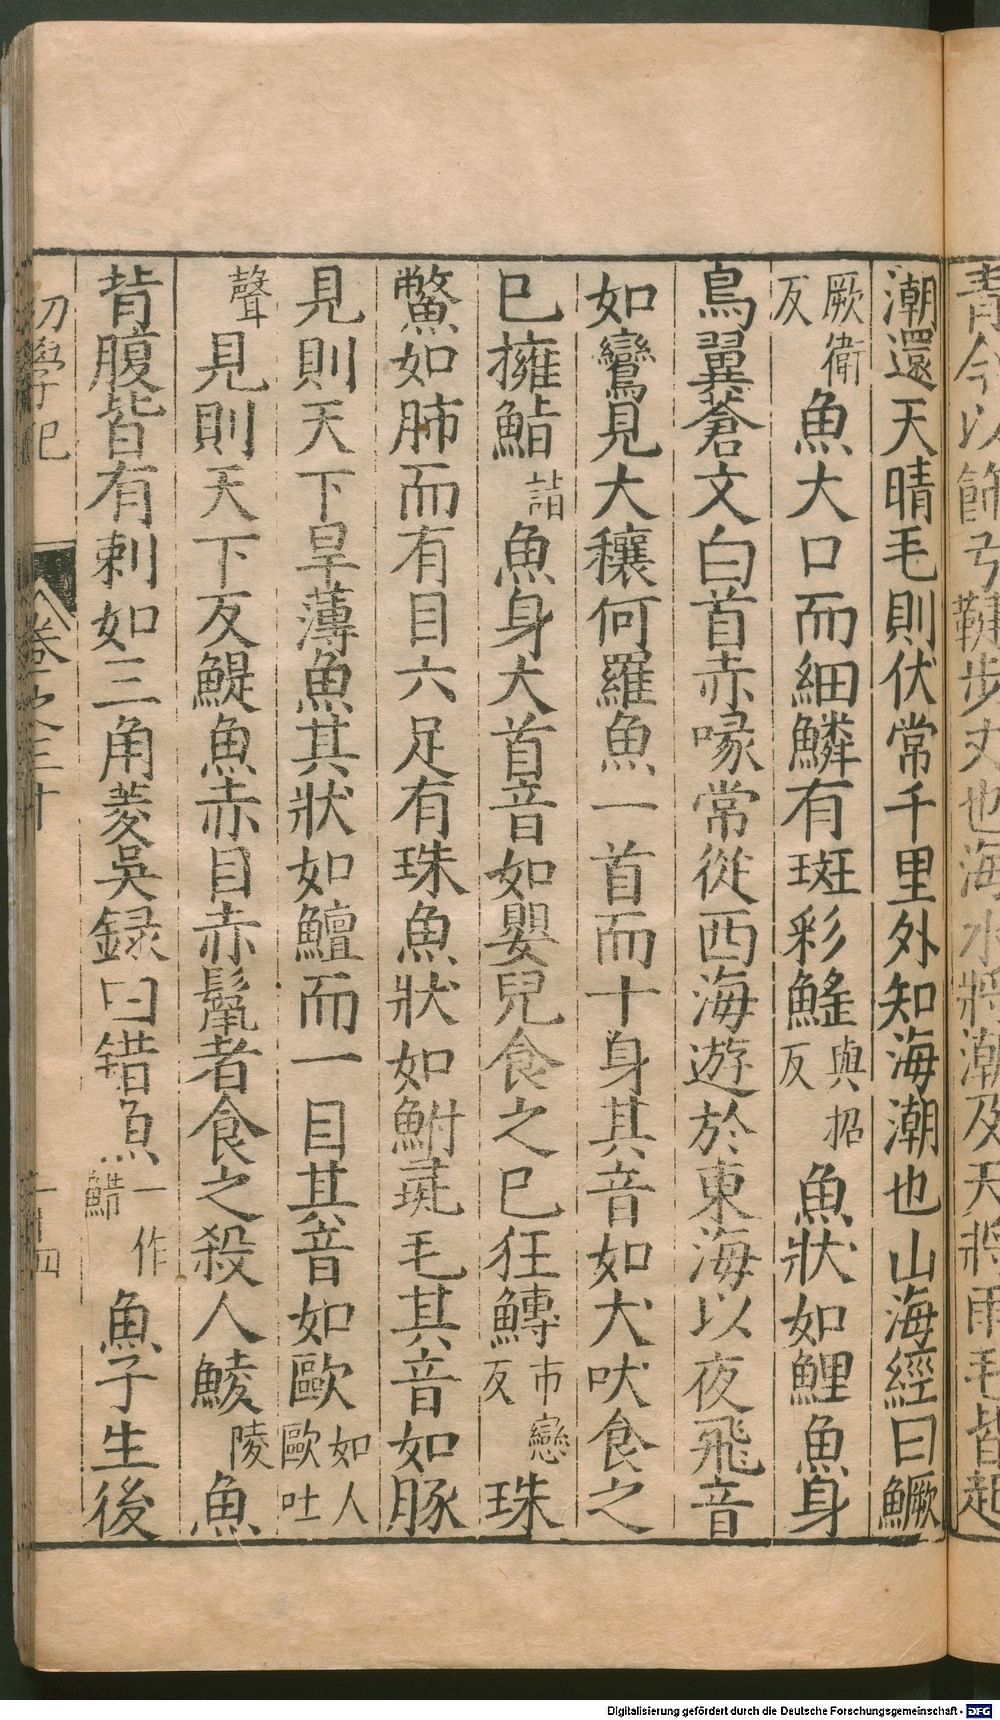 青今以飾弓鞬步丈也海水將潮及天將雨毛皆起
潮還天晴毛則伏常千里外知海潮也山海經曰鱖
厥衛反魚大口而細鱗有斑彩鰩與招反魚狀如鯉魚身
鳥翼蒼文白首赤喙常從西海遊於東海以夜飛音
如鸞見大穰何羅魚一首而十身其音如犬吠食之
已擁鮨詣魚身犬首音如嬰兒食之已狂鱄市戀反珠
鱉如肺而有目六足有珠魚狀如鮒彘毛其音如豚
見則天下旱薄魚其狀如鱣而一目其音如歐如人歐吐
聲見則天下反鯷魚赤目赤鬣者食之殺人鯪陵魚
背腹皆有刺如三角菱吳録曰错魚一作䱜魚子生後
初學記 卷之三十
Digitalisierung gefördert durch die Deutsche Forschungsgemeinschaft - DFG